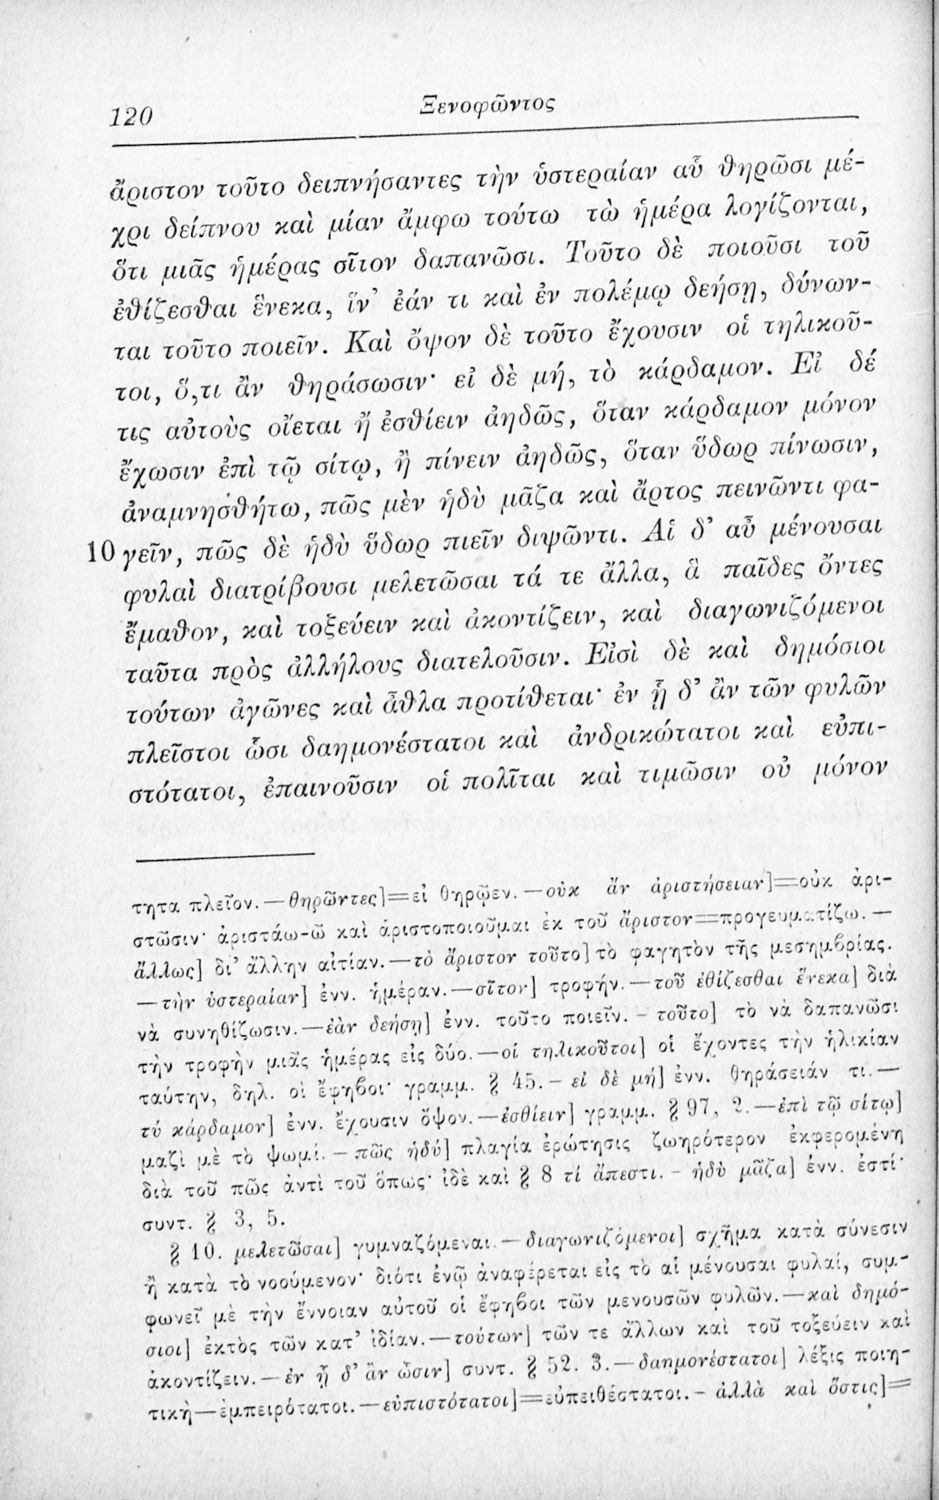 120
Ξενοφῶντος
ἄριστον τοῦτο δειπνήσαντες τὴν ὑστεραίαν αὖ θηρῶσι μέ-
χρι δείπνου καὶ μίαν ἄμφω τούτω τὼ ἡμέρα λογίζονται,
ὅτι μιᾶς ἡμέρας σῖτον δαπανῶσι. Τοῦτο δὲ ποιοῦσι τοῦ
ἐθίζεσθαι ἕνεκα, ἵν' ἐάν τι καὶ ἐν πολέμῳ δεήσῃ, δύνων-
ται τοῦτο ποιεῖν. Καὶ ὄψον δὲ τοῦτο ἔχουσιν οἱ τηλικοῦ-
τοι, ὅ,τι ἂν θηράσωσιν· εἰ δὲ μή, τὸ κάρδαμον. Εἰ δέ
τις αὐτοὺς οἴεται ἢ ἐσθίειν ἀηδῶς, ὅταν κάρδαμον μόνον
ἔχωσιν ἐπὶ τῷ σίτῳ, ἢ πίνειν ἀηδῶς, ὅταν ὕδωρ πίνωσιν,
ἀναμνησθήτω, πῶς μὲν ἡδὺ μᾶζα καὶ ἄρτος πεινῶντι φα-
10 γεῖν, πῶς δὲ ἡδὺ ὕδωρ πιεῖν διψῶντι. Αἱ δ' αὖ μένουσαι
φυλαὶ διατρίβουσι μελετῶσαι τά τε ἄλλα, ἃ παῖδες ὄντες
ἔμαθον, καὶ τοξεύειν καὶ ἀκοντίζειν, καὶ διαγωνιζόμενοι
ταῦτα πρὸς ἀλλήλους διατελοῦσιν. Εἰσὶ δὲ καὶ δημόσιοι
τούτων ἀγῶνες καὶ ἆθλα προτίθεται· ἐν ᾗ δ' ἂν τῶν φυλῶν
πλεῖστοι ὦσι δαημονέστατοι καὶ ἀνδρικώτατοι καὶ εὐπι-
στότατοι, ἐπαινοῦσιν οἱ πολῖται καὶ τιμῶσιν οὐ μόνον
τητα πλεῖον.—θηρῶντες]=εἰ θηρῷεν.—οὐκ ἂν ἀριστήσειαν]=οὐκ ἀρι-
στῶσιν· ἀριστάω-ῶ καὶ ἀριστοποιοῦμαι ἐκ τοῦ ἄριστον=προγευματίζω.—
ἄλλως] δι' ἄλλην αἰτίαν.—τὸ ἄριστον τοῦτο] τὸ φαγητὸν τῆς μεσημβρίας.
—τὴν ὑστεραίαν] ἐνν. ἡμέραν.—σῖτον] τροφήν.—τοῦ ἐθίζεσθαι ἕνεκα] διὰ
νὰ συνηθίζωσιν.—ἐὰν δεήσῃ] ἐνν. τοῦτο ποιεῖν.- τοῦτο] τὸ νὰ δαπανῶσι
τὴν τροφὴν μιᾶς ἡμέρας εἰς δύο.—οἱ τηλικοῦτοι] οἱ ἔχοντες τὴν ἡλικίαν
ταύτην, δηλ. οἱ ἔφηβοι· γραμμ. § 45.- εἰ δὲ μή] ἐνν. θηράσειάν τι.—
τὸ κάρδαμον] ἐνν. ἔχουσιν ὄψον.—ἐσθίειν] γραμμ. § 97, 2.—ἐπὶ τῷ σίτῳ]
μαζὶ μὲ τὸ ψωμί.- πῶς ἡδύ] πλαγία ἐρώτησις ζωηρότερον ἐκφερομένη
διὰ τοῦ πῶς ἀντὶ τοῦ ὅπως· ἰδὲ καὶ § 8 τί ἄπεστι.- ἡδὺ μᾶζα] ἐνν. ἐστί·
συντ. § 3, 5.
§ 10. μελετῶσαι] γυμναζόμεναι.—διαγωνιζόμενοι] σχῆμα κατὰ σύνεσιν
ἢ κατὰ τὸ νοούμενον· διότι ἐνῷ ἀναφέρεται εἰς τὸ αἱ μένουσαι φυλαί, συμ-
φωνεῖ μὲ τὴν ἔννοιαν αὐτοῦ οἱ ἔφηβοι τῶν μενουσῶν φυλῶν.—καὶ δημό-
σιοι] ἐκτὸς τῶν κατ' ἰδίαν.—τούτων] τῶν τε ἄλλων καὶ τοῦ τοξεύειν καὶ
ἀκοντίζειν.—ἐν ᾗ δ' ἂν ὦσιν] συντ. § 52. 3.—δαημονέστατοι] λέξις ποιη-
τικὴ—ἐμπειρότατοι.—εὐπιστότατοι]=εὐπειθέστατοι.- ἀλλὰ καὶ ὅστις]=